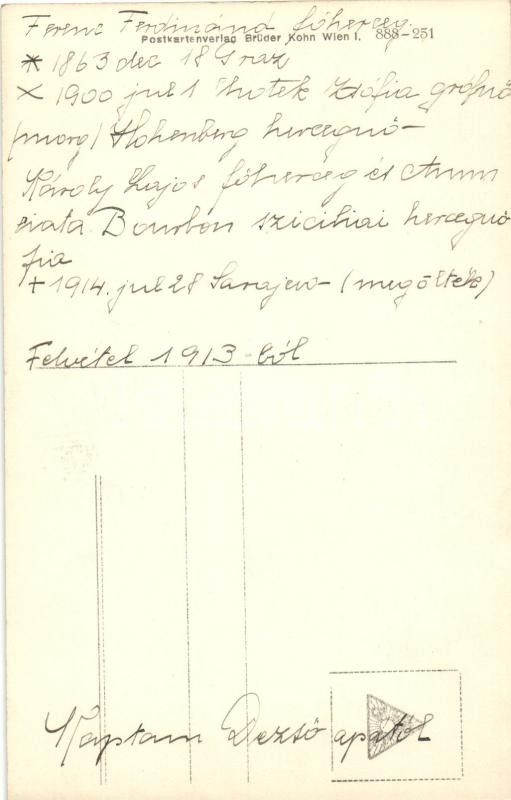 Ferenc Ferdinánd főherceg.
Postkartenverlag Brüder Kohn Wien I. 888-251
* 1863 dec 18 Graz
× 1900 jul 1 Chotek Zsófia grófnő
(morg) Hohenberg hercegnő-
Károly Lajos főherceg és Anun
ciata Bourbon sziciliai hercegnő
fia
+ 1914. jul 28 Sarajevo - (megölték)
Felvétel 1913-ból
Kaptam Dezső apától